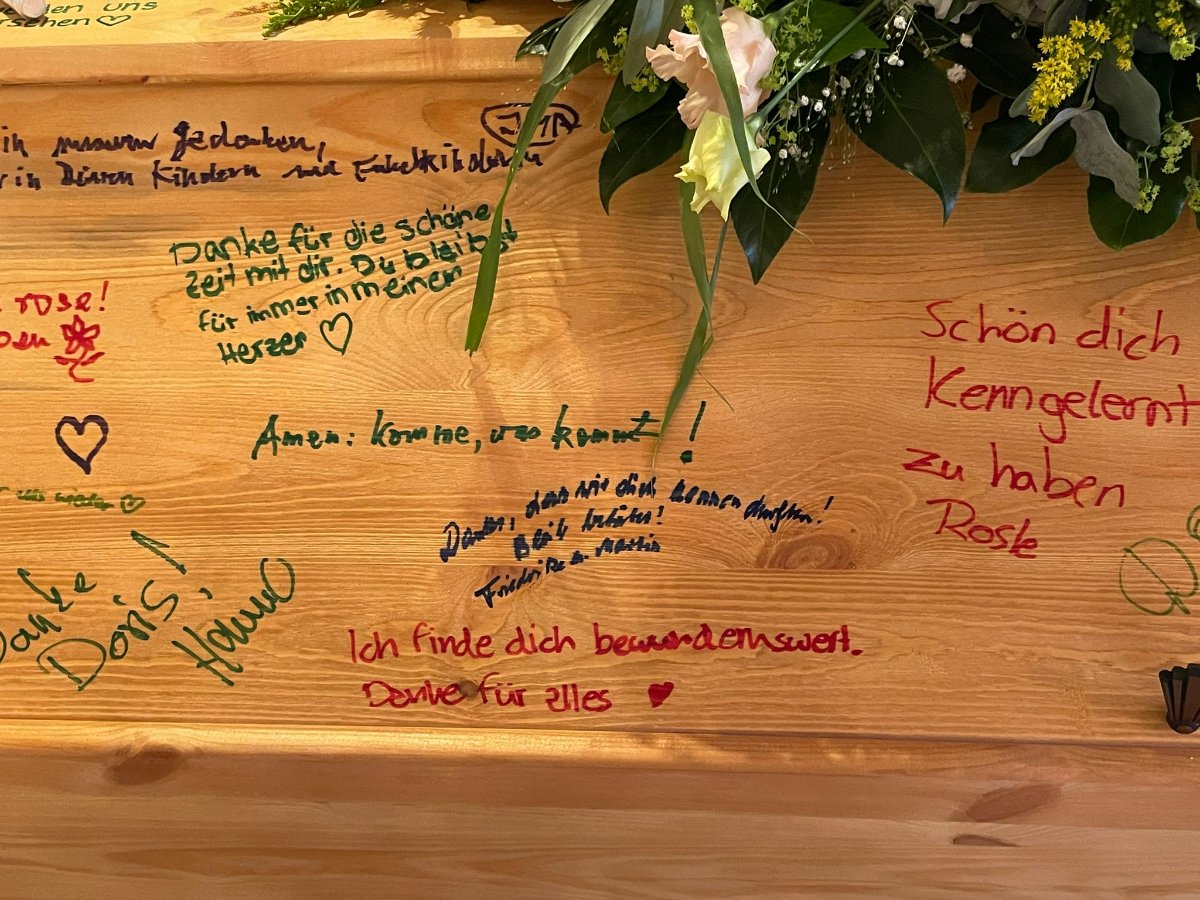 den uns
ersehen
in unseren Gedanken,
in Deinen Kindern und Enkelkindern
Danke für die schöne
Zeit mit dir. Du bleibst
für immer in meinem
Herzen
rose!
Schön dich
Kenngelernt
zu haben
Rosle
Amen: Komme, was kommt!
Danke, dass wir dich kennen durften!
Bleib behütet!
Friederike u. Martin
Danke
Doris!
Ich finde dich bewundernswert.
Danke für alles